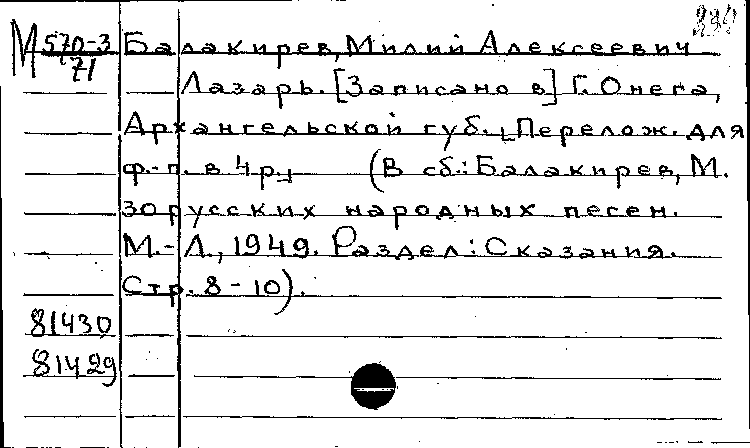 М 570-3/71 Балакирев, Милий Алексеевич
Лазарь. [Записано в] Г. Онега,
Архангельской губ. [Перелож. для
ф.-п. в 4 р.] (В сб.: Балакирев, М.
30 русских народных песен.
М.-Л., 1949. Раздел: Сказания.
Стр. 8-10).
81430
81429